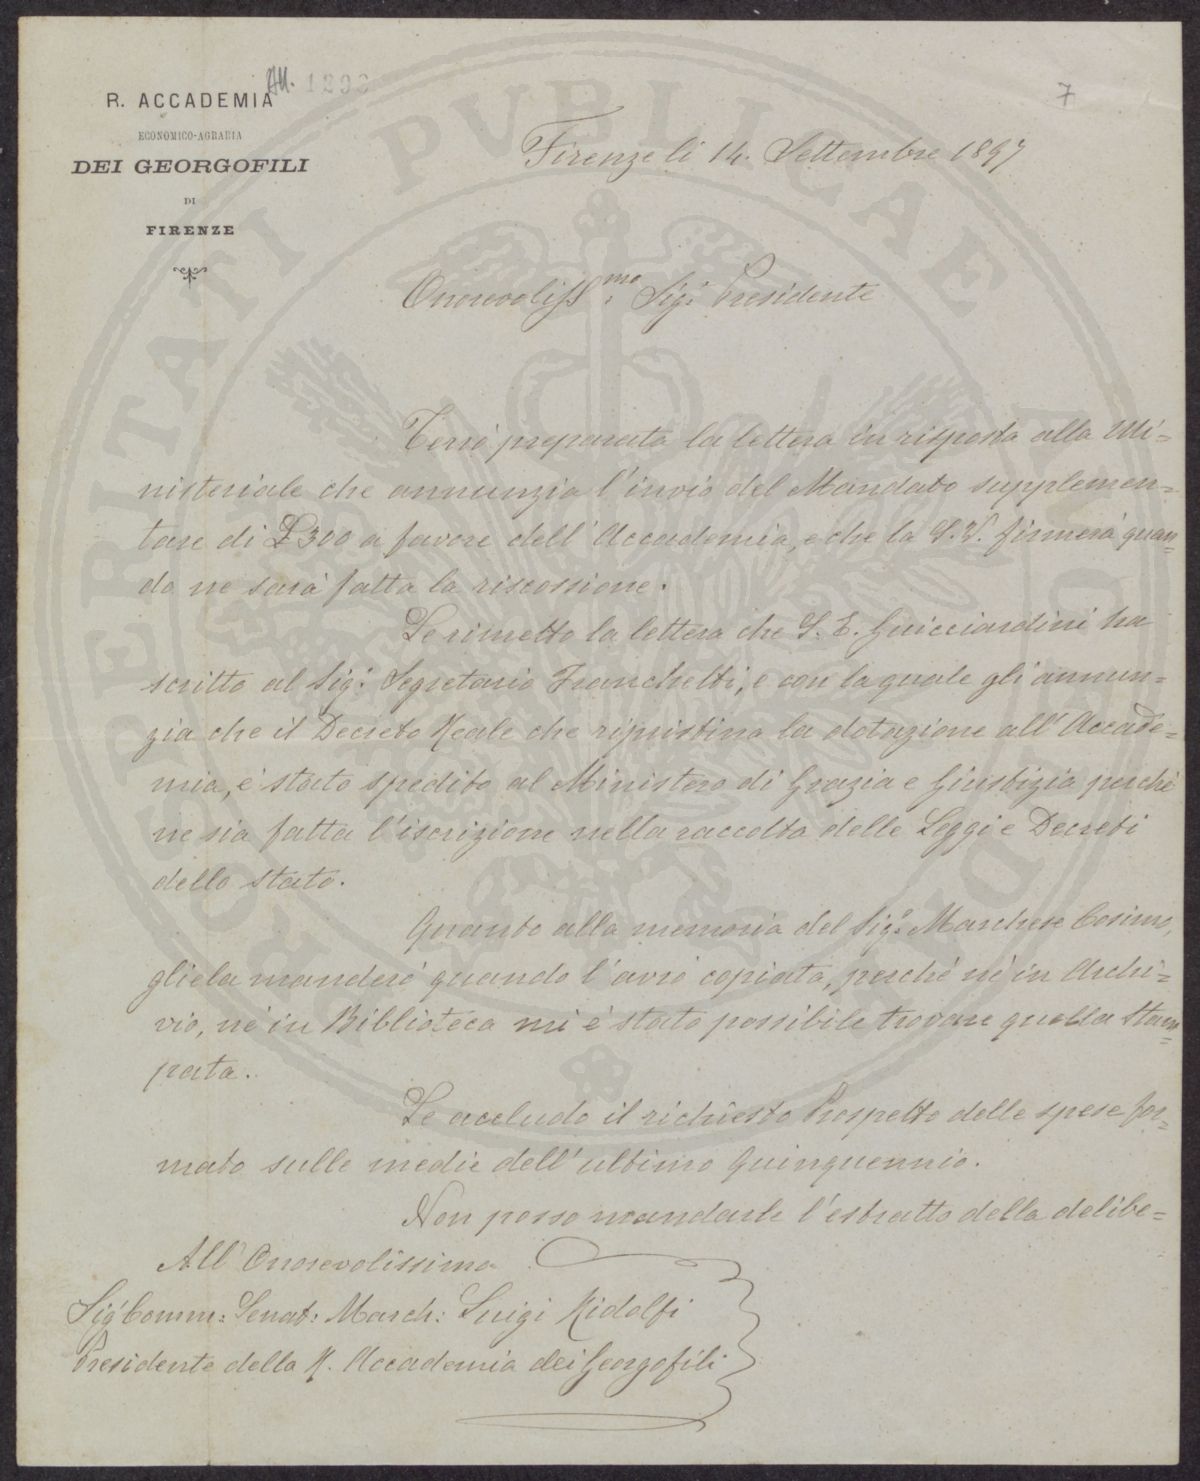 All. 1293
7
R. ACCADEMIA
ECONOMICO-AGRARIA
DEI GEORGOFILI
DI
FIRENZE
PROSPERITATI PVBLICAE AVGENDAE
Firenze li 14. Settembre 1897
Onorevoliss.mo Sigr. Presidente
Terrò preparata la lettera in risposta alla Mi=
nisteriale che annunzia l'invio del Mandato supplemen=
tare di £300 a favore dell'Accademia, e che la S.V. firmerà quan=
do ne sarà fatta la riscossione.
Le rimetto la lettera che S. E. Guicciardini ha
scritto al Sigr. Segretario Franchetti, e con la quale gli annun=
zia che il Decreto Reale che ripristina la dotazione all'Accade=
mia, è stato spedito al Ministero di Grazia e Giustizia perchè
ne sia fatta l'iscrizione nella raccolta delle Leggi e Decreti
dello Stato.
Quanto alla memoria del Sigr. Marchese Cosimo,
gliela manderò quando l'avrò copiata, perchè nè in Archi=
vio, nè in Biblioteca mi è stato possibile trovare quella stam=
pata.
Le accludo il richiesto Prospetto delle spese for=
mato sulle medie dell'ultimo Quinquennio.
Non posso mandarle l'estratto della delibe=
All'Onorevolissimo
Sigr Comm: Senat: March: Luigi Ridolfi
Presidente della R. Accademia dei Georgofili